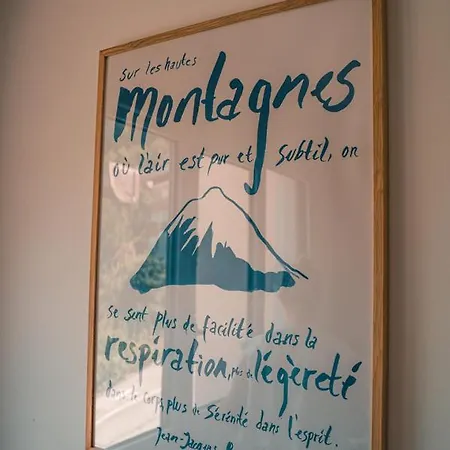 sur les hautes
montagnes
où l'air est pur et subtil, on
se sent plus de facilité dans la
respiration, plus de légèreté
dans le corps, plus de sérénité dans l'esprit.
Jean-Jacques